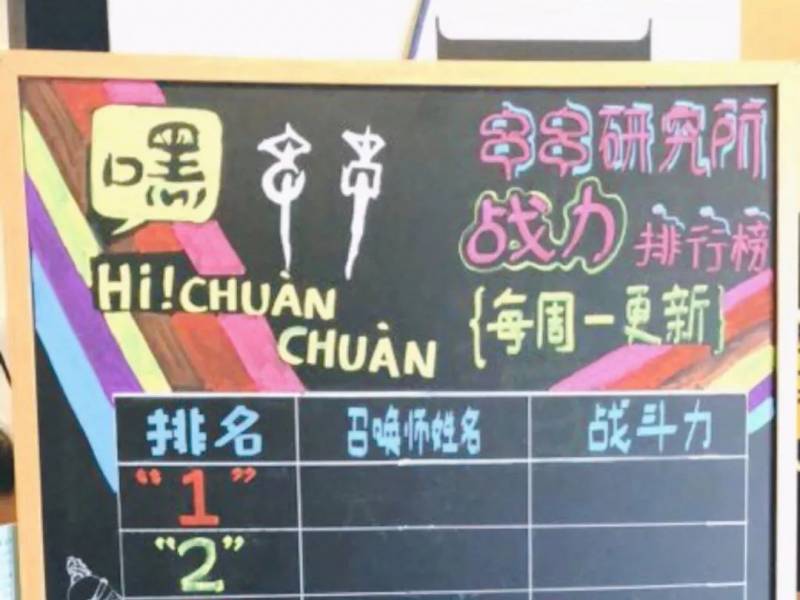 嘿串串
Hi!CHUÀN
CHUÀN
串串研究所
战力排行榜
{每周一更新}
排名 召唤师姓名 战斗力
“1”
“2”